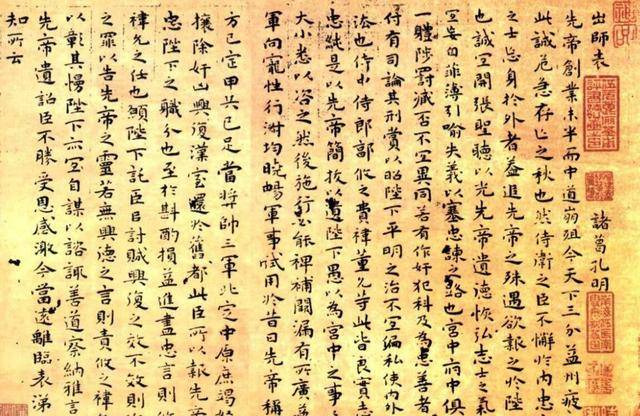 出師表 諸葛孔明
先帝創業未半而中道崩殂今天下三分益州疲
此誠危急存亡之秋也然侍衛之臣不懈於內忠
之士忘身於外者蓋追先帝之殊遇欲報之於陛
也誠宜開張聖聽以光先帝遺德恢弘志士之氣
宜妄自菲薄引喻失義以塞忠諫之路也宮中府中俱
一體陟罰臧否不宜異同若有作奸犯科及為忠善者
付有司論其刑賞以昭陛下平明之治不宜偏私使內外
法也侍中侍郎郭攸之費禕董允等此皆良實志
忠純是以先帝簡拔以遺陛下愚以為宮中之事
大小悉以咨之然後施行必能裨補闕漏有所廣
軍向寵性行淑均曉暢軍事試用於昔日先帝稱
方已定甲兵已足當獎帥三軍北定中原庶竭
攘除奸凶興復漢室還於舊都此臣所以報先
忠陛下之職分也至於斟酌損益進盡忠言則
禕允之任也願陛下託臣以討賊興復之效不效則
之罪以告先帝之靈若無興德之言則責攸之禕
以彰其慢陛下亦宜自謀以諮諏善道察納雅言
先帝遺詔臣不勝受恩感激今當遠離臨表涕
知所云